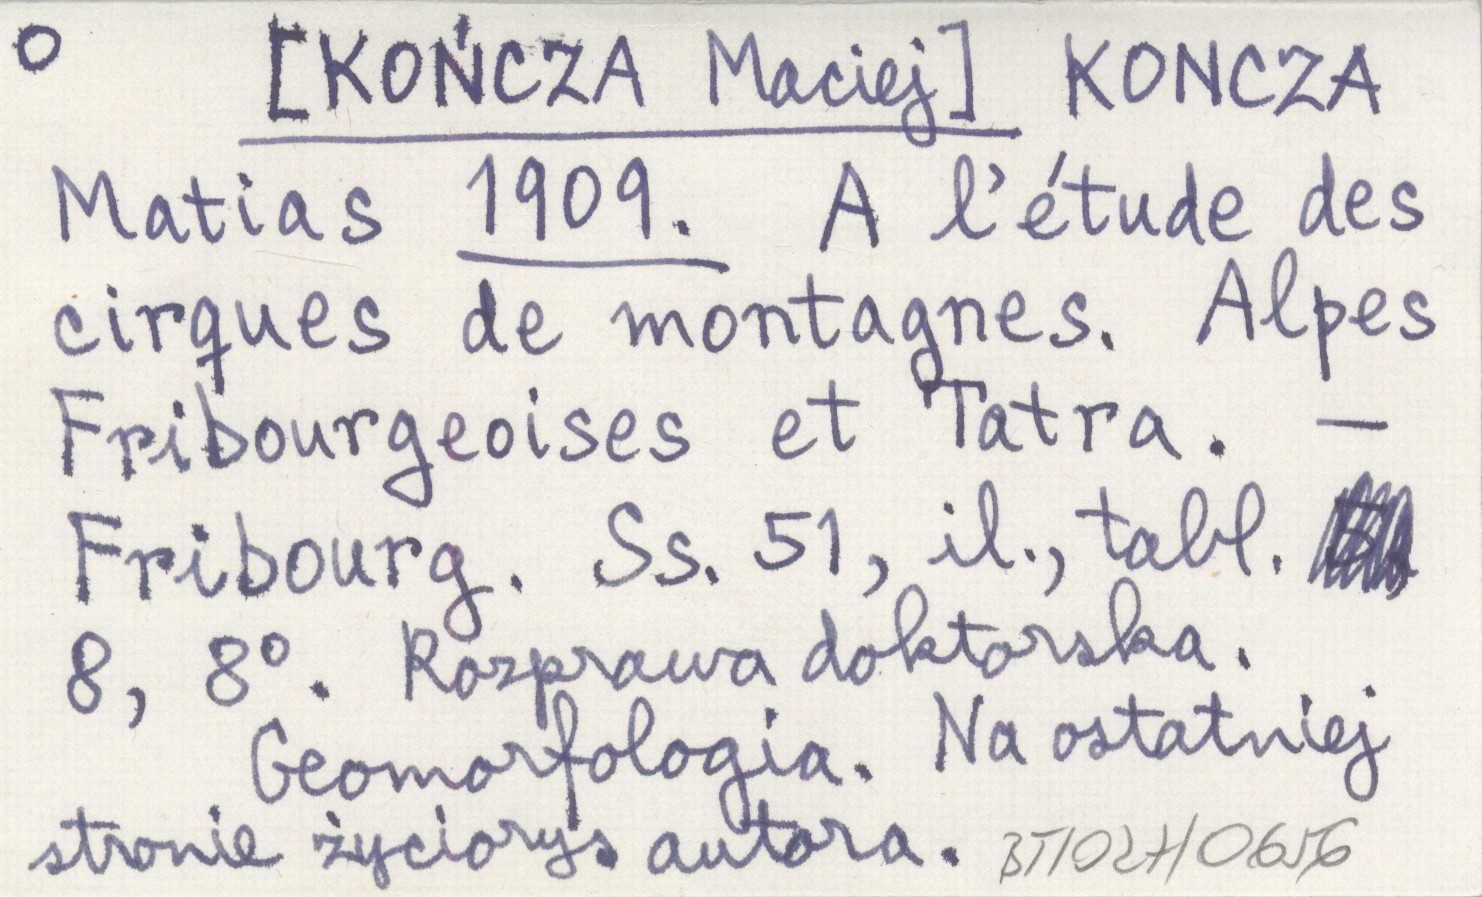 o [KOŃCZA Maciej] KONCZA
Matias 1909. A l'étude des
cirques de montagnes. Alpes
Fribourgeoises et Tatra. —
Fribourg. Ss. 51, il., tabl.
8, 8°. Rozprawa doktorska.
Geomorfologia. Na ostatniej
stronie życiorys autora.